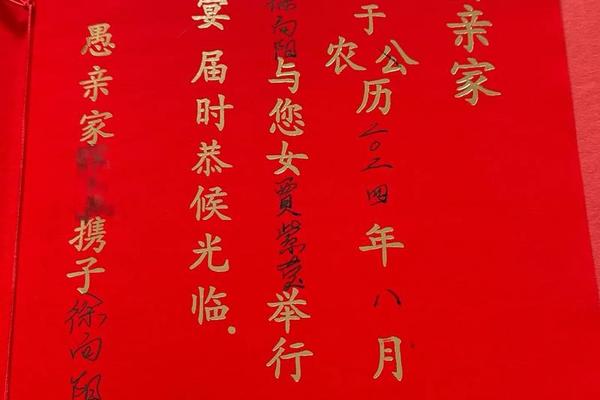 亲家
于公农历二〇二四年八月
徐向阳与您女賈紫举行
宴届时恭候光临.
愚亲家携子徐向